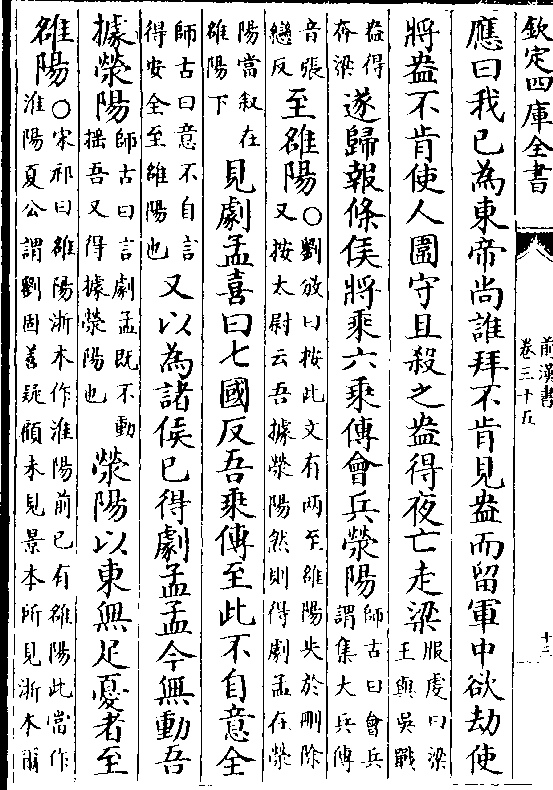 欽定四庫全書
前漢書
卷三十五
十三
應曰我已為東帝尚誰拜不肯見盎而留軍中欲劫使
將盎不肯使人圍守且殺之盎得夜亡走梁服虔曰梁王與吳戰
盎得奔梁遂歸報條侯將乘六乘傳會兵滎陽師古曰會兵謂集大兵傳
音張戀反至雒陽○劉攽曰按此文有兩至雒陽失於刪除又按太尉云吾據滎陽然則得劇孟在滎
陽當叙在雒陽下見劇孟喜曰七國反吾乘傳至此不自意全
師古曰意不自言得安全至雒陽也又以為諸侯已得劇孟孟今無動吾
據滎陽師古曰言劇孟既不動揺吾又得據滎陽也滎陽以東無足憂者至
雒陽○宋祁曰雒陽浙本作淮陽前已有雒陽此當作淮陽夏公謂劉固善疑顧未見景本所見浙本爾